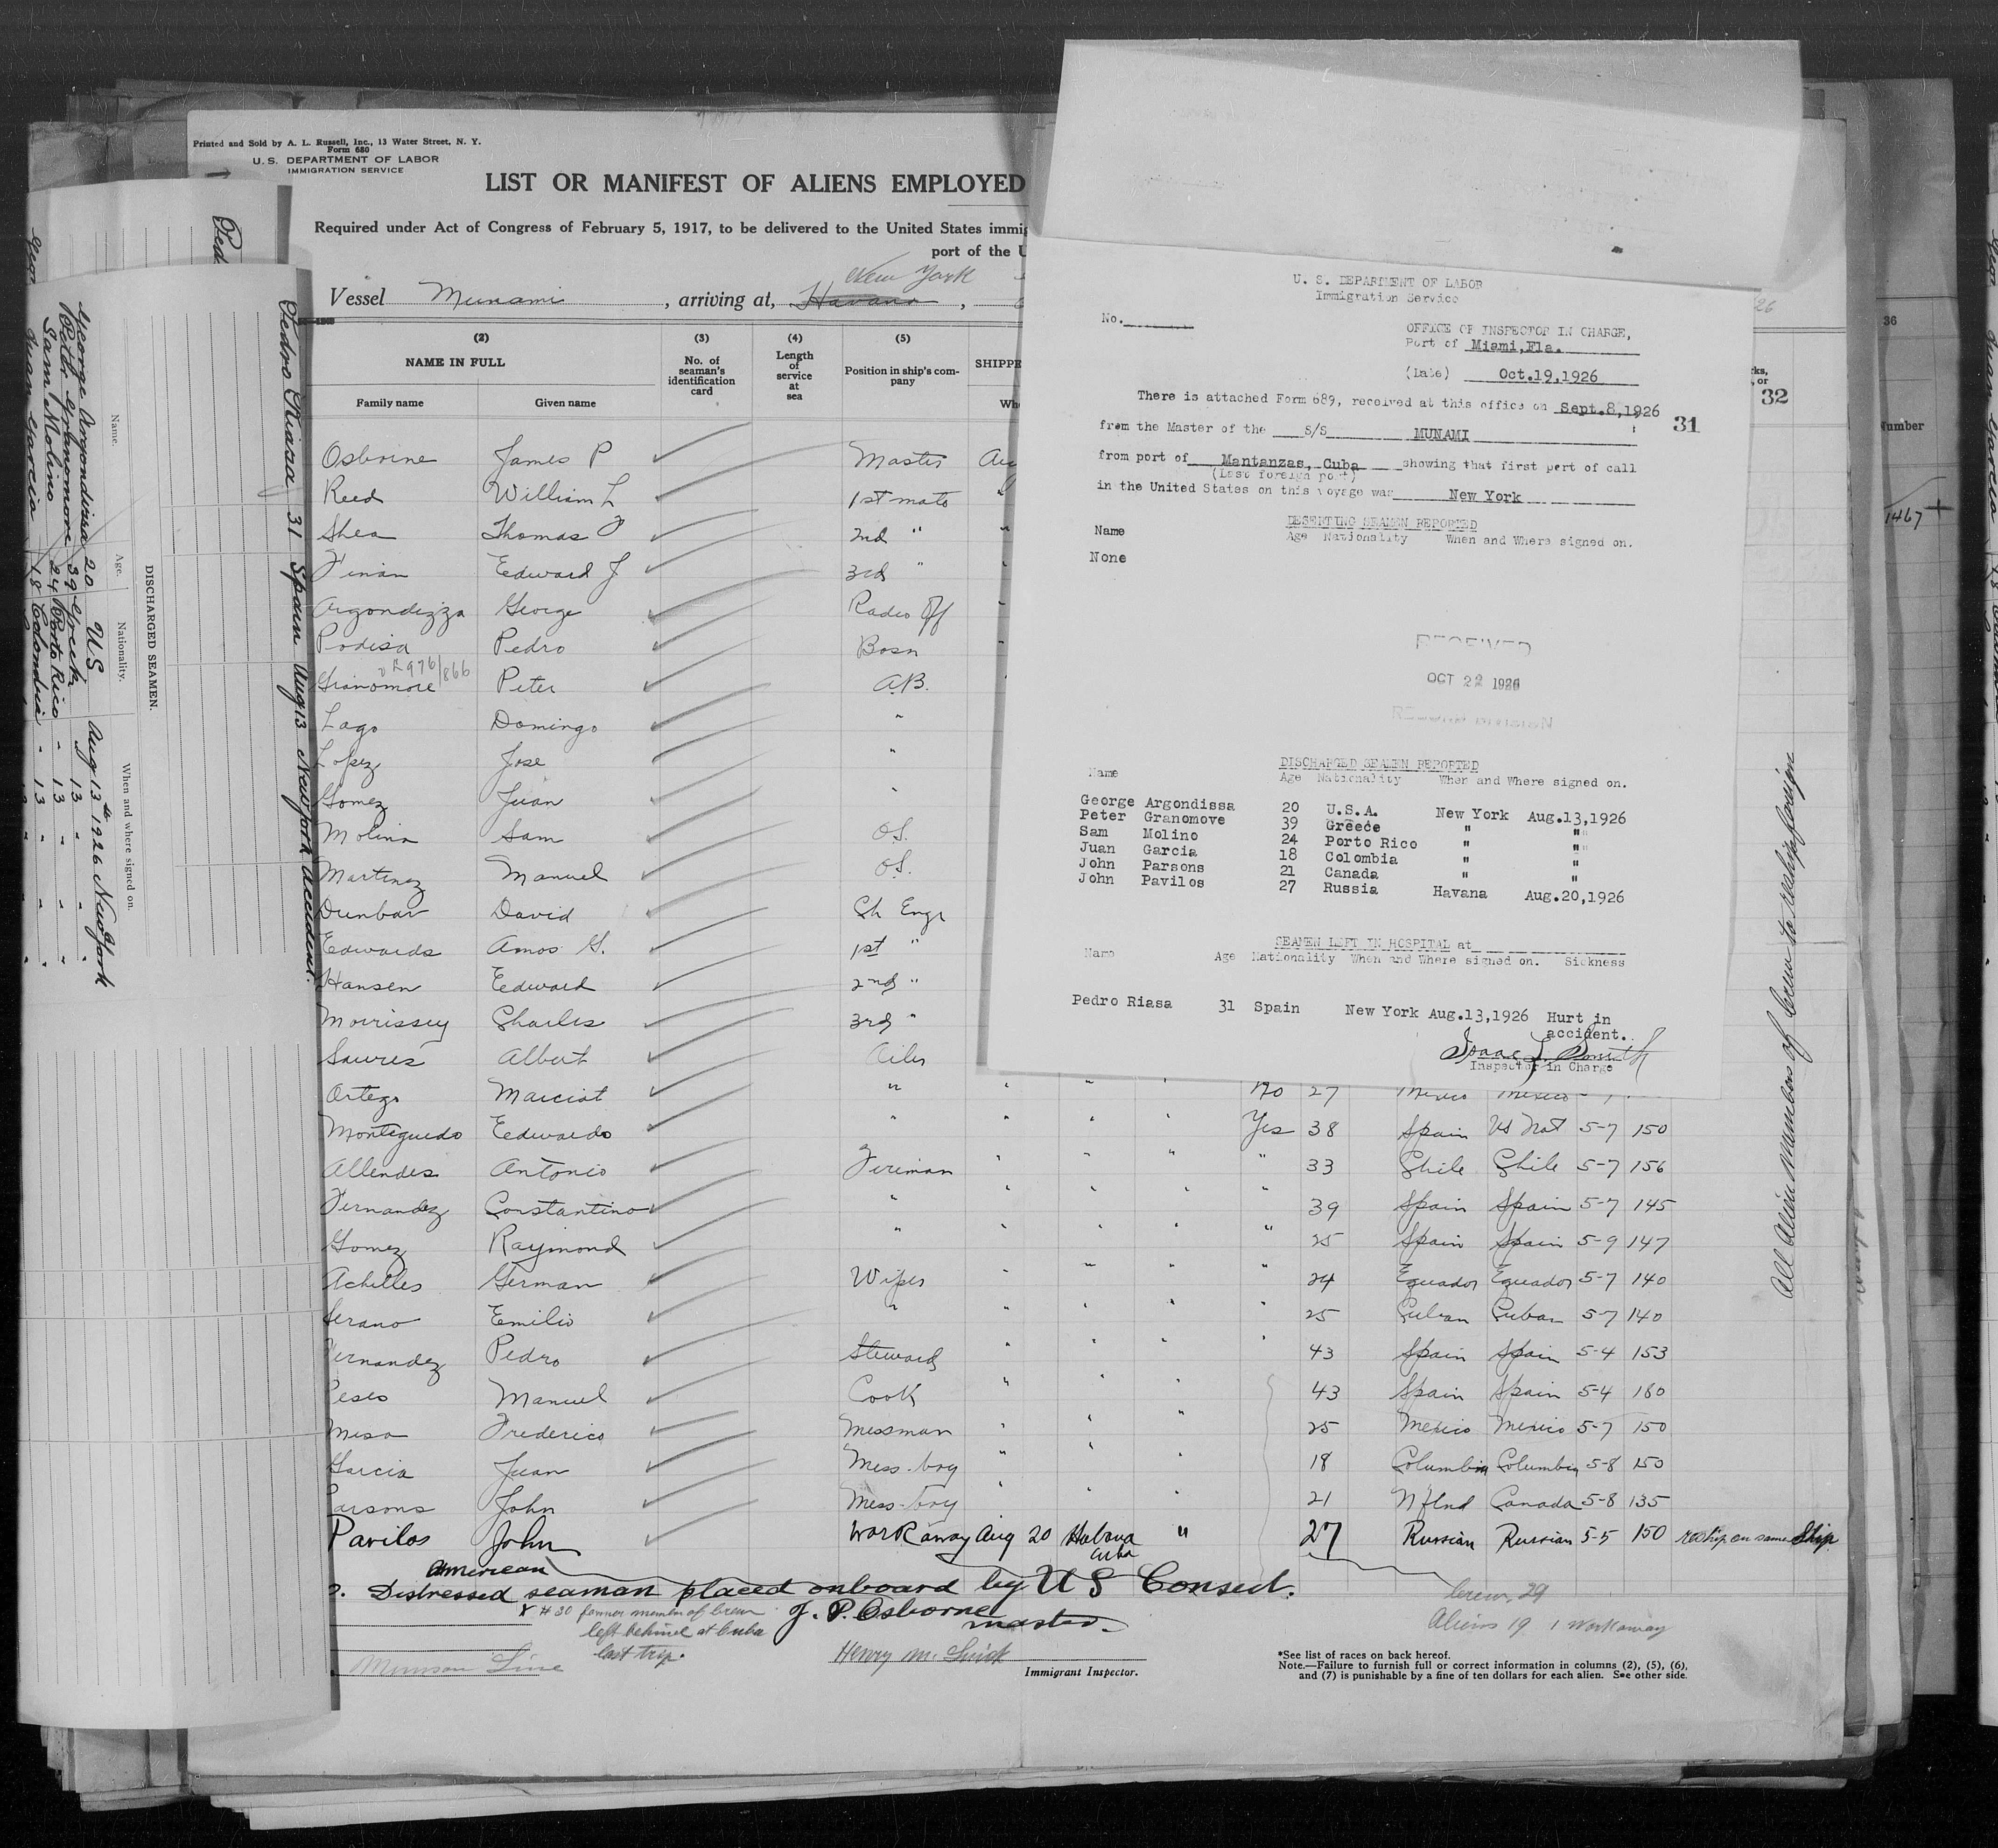 Printed and Sold by A. L. Russell, Inc., 13 Water Street, N. Y.
Form 680
U. S. DEPARTMENT OF LABOR
IMMIGRATION SERVICE
LIST OR MANIFEST OF ALIENS EMPLOYED
Required under Act of Congress of February 5, 1917, to be delivered to the United States immig
port of the U
New York
Vessel Munami , arriving at, Havana ,
(2) (3) (4) (5)
NAME IN FULL No. of seaman's identification card Length of service at sea Position in ship's company SHIPPE
Family name Given name Wh
Osborne James P Master Aug
Reed William L 1st mate "
Shea Thomas F 2nd " "
Finan Edward J 3rd "
Argondizza George Radio Off "
Podisa Pedro Bosn "
976/866
Granomore Peter A.B.
Lago Domingo "
Lopez Jose "
Gomez Juan "
Molina Sam O.S.
Martinez Manuel O.S.
Dunbar David Ch Engr
Edwards Amos G. 1st "
Hansen Edward 2nd "
Morrissey Charles 3rd "
Saures Albert Oiler
Ortego Marciot " " " " No 27 Mexico Mexico
Monteguedo Eedwardo " " " " Yes 38 Spain US Nat 5-7 150
Allendes Antonio Fireman " " " " 33 Chile Chile 5-7 156
Fernandez Constantino " " " " " 39 Spain Spain 5-7 145
Gomez Raymond " " " " " 25 Spain Spain 5-9 147
Achilles German Wiper " " " " 24 Equador Equador 5-7 140
Serano Emilio " " " " " 25 Cuban Cuban 5-7 140
ernandez Pedro Steward " " " " 43 Spain Spain 5-4 153
Manuel Cook " " " 43 Spain Spain 5-4 180
Mesa Frederico Messman " " " 25 Mexico Mexico 5-7 150
Garcia Juan Mess-boy " " " 18 Columbia Columbia 5-8 150
arsons John Mess-boy " " " 21 N'flnd Canada 5-8 135
Pavilos John Workaway Aug 20 Habana Cuba " 27 Russian Russian 5-5 150 reship on same Ship.
American
Distressed seaman placed onboard by US Consul.
x # 30 former member of crew
left behind at Cuba
last trip.
J. P. Osborne
master
Crew 29
Aliens 19 1 Workaway
Munson Line
Immigrant Inspector.
*See list of races on back hereof.
Note.—Failure to furnish full or correct information in columns (2), (5), (6),
and (7) is punishable by a fine of ten dollars for each alien. See other side.
All Alien members of Crew to reship foreign
32
31
36
umber
1467
U. S. DEPARTMENT OF LABOR
Immigration Service
No.
OFFICE OF INSPECTOR IN CHARGE,
Port of Miami, Fla.
(Date) Oct.19,1926
There is attached Form 689, received at this office on Sept.8,1926
from the Master of the S/S MUNAMI
from port of Mantanzas, Cuba showing that first port of call
(Last foreign port)
in the United States on this voyage was New York
DESERTING SEAMEN REPORTED
Name Age Nationality When and Where signed on.
None
RECEIVED
OCT 22 1926
RECORD DIVISION
DISCHARGED SEAMEN REPORTED
Name Age Nationality When and Where signed on.
George Argondissa 20 U.S.A. New York Aug.13,1926
Peter Granomove 39 Greece " "
Sam Molino 24 Porto Rico " "
Juan Garcia 18 Colombia " "
John Parsons 21 Canada " "
John Pavilos 27 Russia Havana Aug.20,1926
SEAMEN LEFT IN HOSPITAL at
Name Age Nationality When and Where signed on. Sickness
Pedro Riasa 31 Spain New York Aug.13,1926 Hurt in
accident.
Isaac L. Smith
Inspector in Charge
Pedro Riasa 31 Spain Aug 13 New York accident.
DISCHARGED SEAMEN.
Name. Age. Nationality. When and where signed on.
George Argondissa 20 U.S Aug 13th 1926 New York
Peter Granomone 39 Greek " 13 " "
Sam Molino 24 Porto Rico " 13 " "
Juan Garcia 18 Colombia " 13 " "